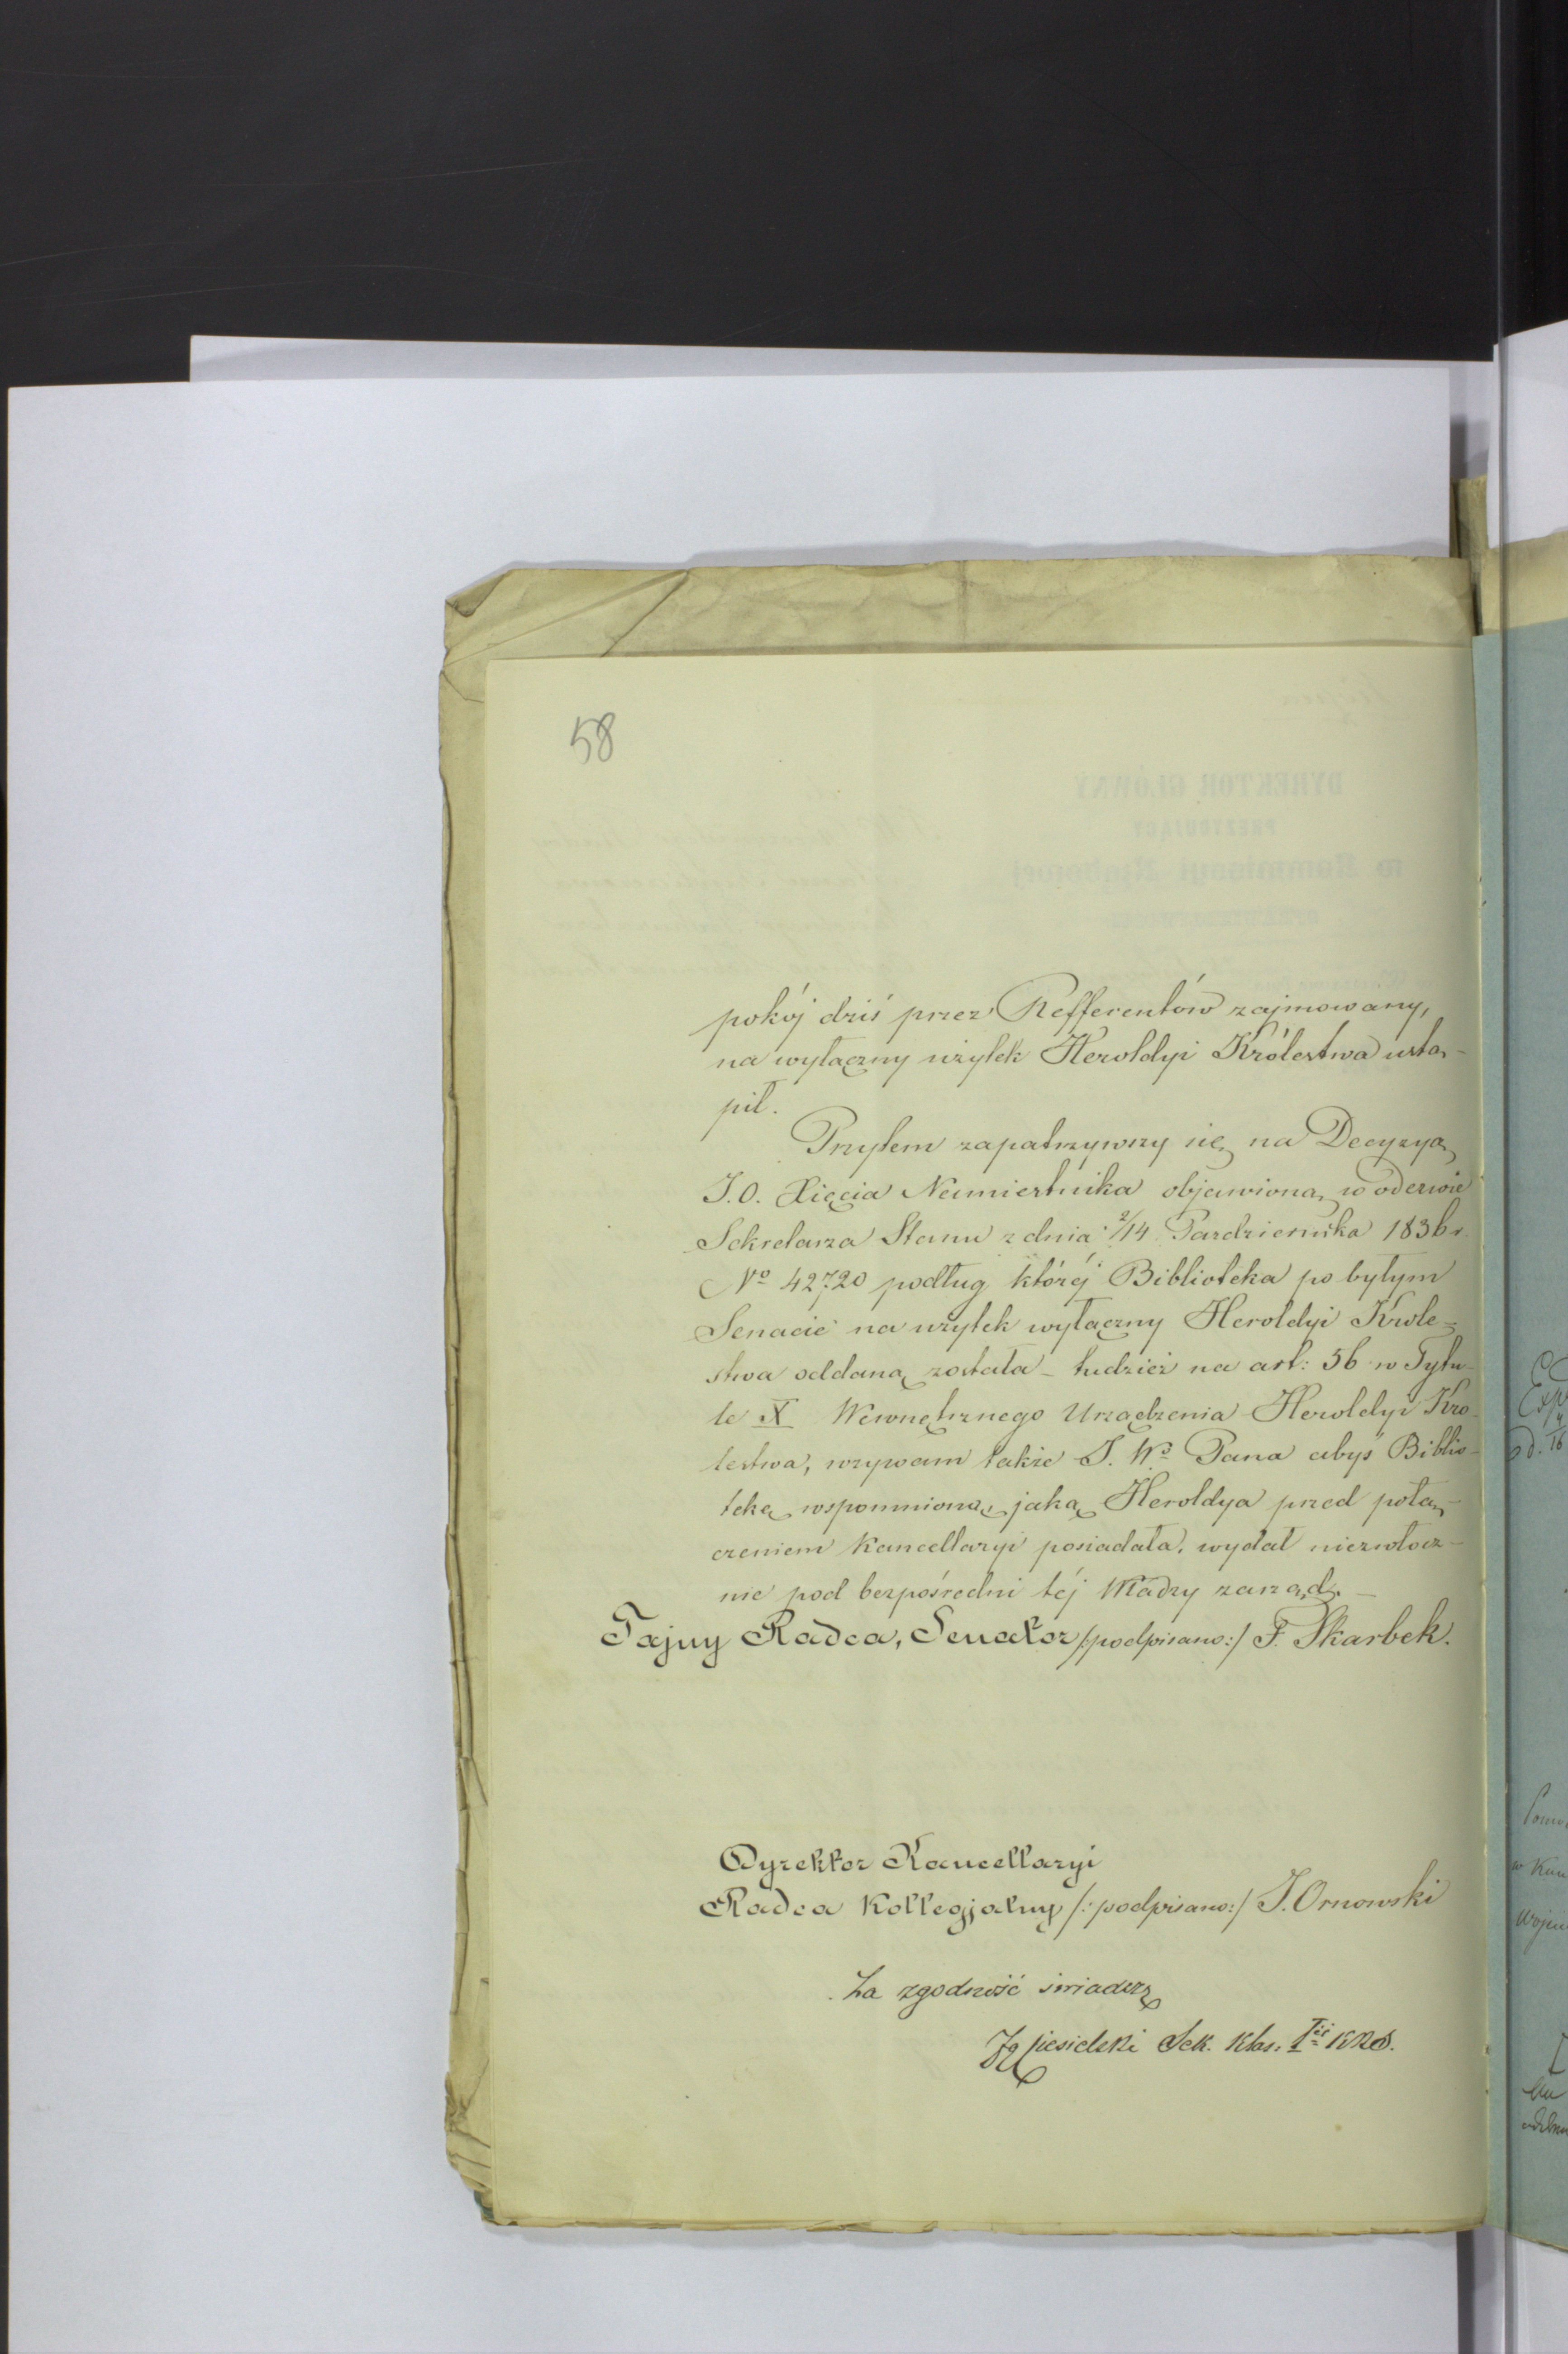 58
pokój dziś przez Refferentów zajmowany,
na wyłączny użytek Heroldyi Królestwa ustą-
pił.
Przytem zapatrzywszy się na Decyzyą
J.O. Xięcia Namiestnika objawioną w odezwie
Sekretarza Stanu z dnia 2/14 Pazdziernika 1836 r.
No 42720 podług któréj Biblioteka po byłym
Senacie na użytek wyłączny Heroldyi Krole-
stwa oddaną została - tudzież na art: 56 w Tytu-
le X Wewnętrznego Urządzenia Heroldyi Kró-
lestwa, wzywam także J. Wo Pana abyś Biblio-
tekę wspomnioną, jaką Heroldya przed połą-
czeniem Kancellaryi posiadała, wydał niezwłocz-
nie pod bezpośredni téj Władzy zarząd. -
Tajny Radca, Senator /:podpisano:/ F. Skarbek.
Dyrektor Kancellaryi
Radca Kollegjalny /:podpisano:/ J. Ornowski
Za zgodność świadczę
Sek. klas. I